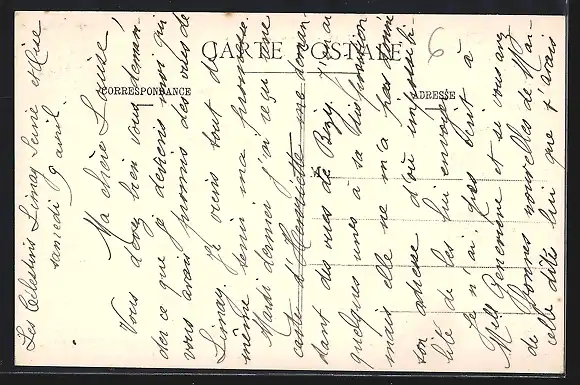 CARTE POSTALE
CORRESPONDANCE
ADRESSE
M
6
Les Célestins Limay Seine et Oise
samedi 9 avril
Ma chère Louise
Vous devez bien vous deman-
der ce que je deviens moi qui
vous avais promis des vues de
Limay. Je viens tout de
même tenir ma promesse.
Mardi dernier j'ai reçu une
carte d'Henriette me deman-
dant des vues de Bizy. J'en ai
quelques unes à sa disposition
mais elle ne m'a pas donné
son adresse d'où impossibi-
lité de les lui envoyer.
Je n'ai pas écrit à
Mell et si vous avez
de bonnes nouvelles de M
elle dites lui que j'avais